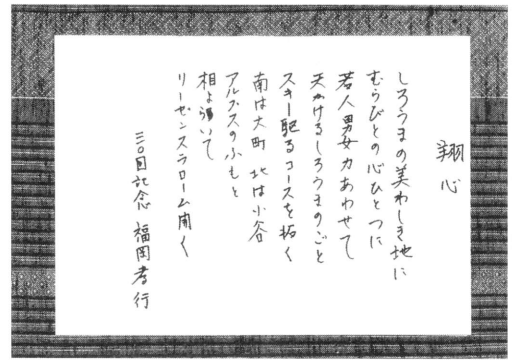 翔心
しろうまの美わしき地に
むらびとの心ひとつに
若人男女力あわせて
天かけるしろうまのごと
スキー駆るコースを拓く
南は大町 北は小谷
アルプスのふもと
相よ湧いて
リーゼンスラローム開く
三〇回記念 福岡孝行